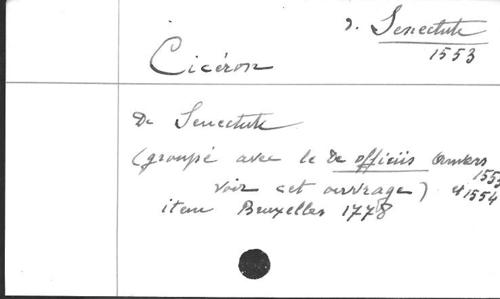 d. Senectute
1553
Cicéron
De Senectute
(groupé avec le De officiis Anvers
1553
voir cet ouvrage) et 1554
item Bruxelles 1778